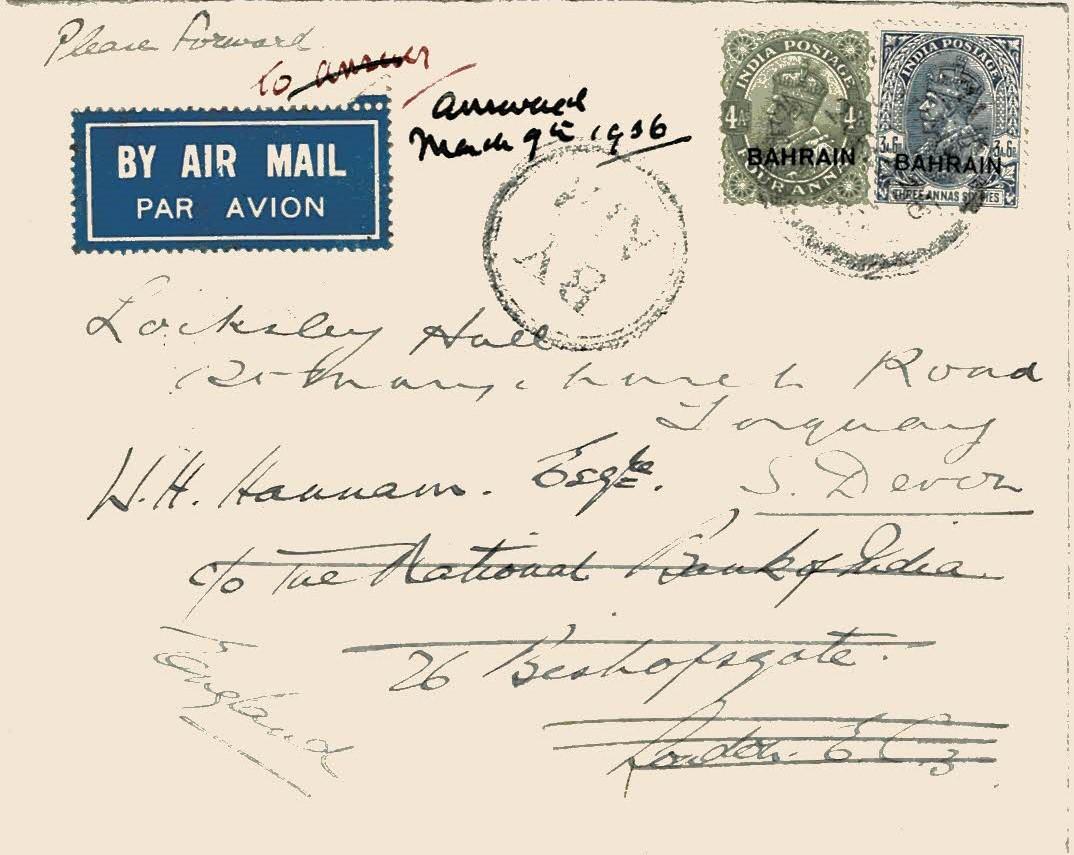 Please Forward
To answer
answered
March 9th 1936
BY AIR MAIL
PAR AVION
INDIA POSTAGE
4A 4A
BAHRAIN
FOUR ANNAS
INDIA POSTAGE
3A6P 3A6P
BAHRAIN
THREE ANNAS SIX PIES
Locksley Hall
Road
Torquay
S. Devon
W. H. Hannam. Esqre.
c/o The National Bank of India
26 Bishopsgate.
London. E. C. 3
England